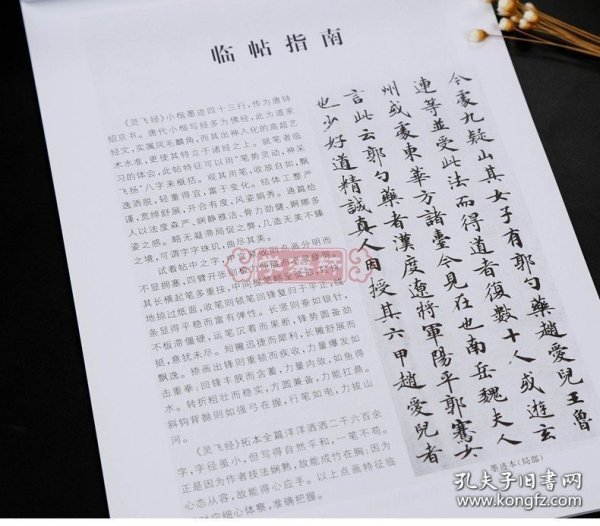 临帖指南
《灵飞经》小楷墨迹四十三行，传为唐钟
绍京书。唐代小楷写经多为佛经，此为道家
经文，实属凤毛麟角，而其出神入化的高超艺
术水准，更使其特立于诸经之上。就笔者临
习的体会，此帖特征可以用“笔势灵动，神采
飞扬”八字来概括。观其用笔，收放自如，飘
逸洒脱，轻重得宜，富于变化。结体工整严
谨，宽绰舒展，开合有度，风姿娟秀。通篇给
人以法度森严、娴静雅洁、骨力劲健、婀娜多
姿之感。略无凝滞局促之弊，几造无美不臻
之境，可谓字字珠玑，曲尽其美。
试看帖中之字，
不显拥塞，四臂开张
其长横起笔多重按，中
地掠过纸面，收笔则顿笔回锋复归于平正，线
条显得平稳而富有弹性。长竖则垂如银针，
不板滞僵硬，运笔沉着而果断，锋势圆备劲
挺，意犹未尽。短撇迅捷而犀利，长撇舒展而
飘逸。捺画出锋则重顿而疾收，力量爆发如
击重拳；回锋丰腴而含蓄，力量内敛，如鱼得
水。转折粗壮而稳实，方圆兼备，力能扛鼎。
斜钩背抛则如强弓在握，行笔如电，力拔山
河。
《灵飞经》拓本全篇洋洋洒洒二千六百余
字，字径虽小，但写得自然平和，一笔不苟。
正是因为作者技法娴熟，故能成竹在胸；因为
心态从容，故能得心应手。以上点画特征临
时应细心体察，准确把握。
今处九疑山其女子有郭勺藥趙愛兒王魯
連等並受此法而得道者復數十人或遊玄
州或處東華方諸臺今見在也南岳魏夫人
言此云郭勺藥者漢度遼將軍陽平郭騫女
也少好道精誠真人因授其六甲趙愛兒者
墨迹本(局部)
学海轩
孔夫子旧书网
www.kongfz.com